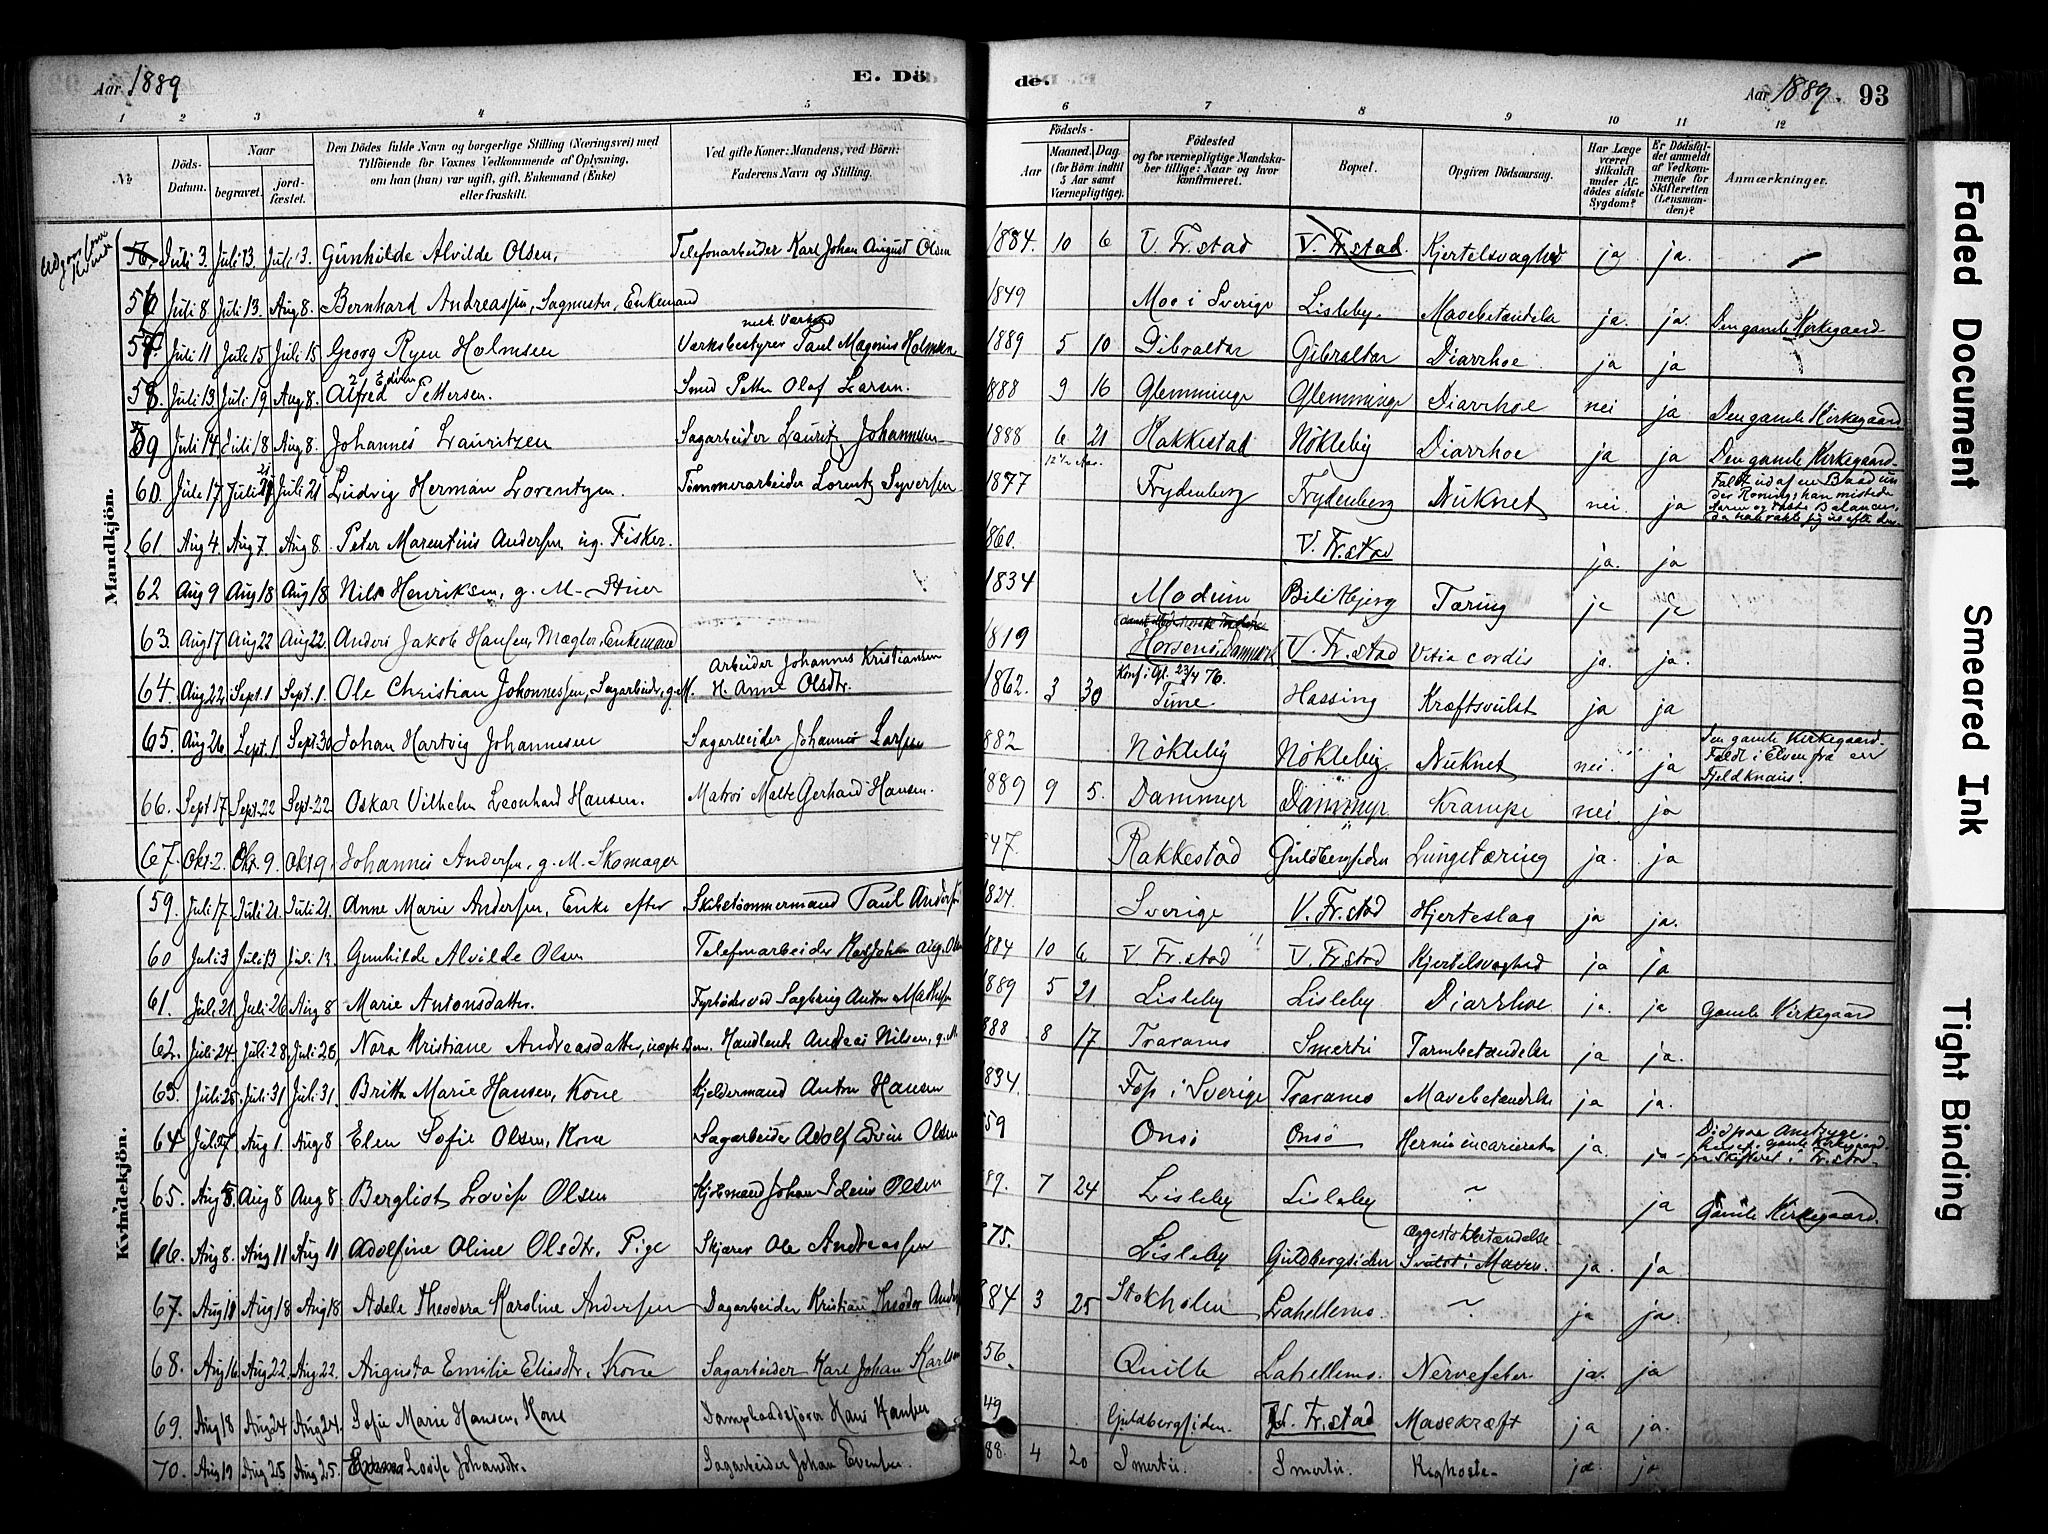 Aar 1889
E. Dö
de.
Aar 1889. 93
1 2 3 4 5 6 7 8 9 10 11 12
№
Döds-Datum.
Naar begravet. jordfæstet.
Den Dödes fulde Navn og borgerlige Stilling (Næringsvei) med
Tilföiende for Voxnes Vedkommende af Oplysning,
om han (hun) var ugift, gift, Enkemand (Enke)
eller fraskilt.
Ved gifte Koner: Mandens, ved Börn:
Faderens Navn og Stilling.
Födsels-
Aar Maaned. Dag.
(for Börn indtil 5 Aar samt Værnepligtige).
Födested
og for værnepligtige Mandskaber tillige: Naar og hvor konfirmeret.
Bopæl.
Opgiven Dödsaarsag.
Har Læge været tilkaldt under Afdödes sidste Sygdom?
Er Dödsfaldet anmeldt af Vedkommende for Skifteretten (Lensmanden)?
Anmærkninger.
Mandkjön.
56. Juli 3. Juli 13. Juli 13. Gunhilde Alvilde Olsen, Telefonarbeider Karl Johan August Olsen 1884. 10 6 V. Fr.stad V. Fr.stad. Kjertelsvaghed ja ja.
56 Juli 8 Juli 13 Aug 8. Bernhard Andreassen, Sagmester, Enkemand 1849 Moe i Sverige Lisleby. Mavebetændelse ja. ja. Den gamle Kirkegaard
57. Juli 11 Juli 15 Juli 15 Georg Ryen Holmsen Værksbestyrer Paul Magnus Holmsen 1889 5 10 Gibraltar Gibraltar Diarrhoe ja ja
58. Juli 13 Juli 19 Aug 8. Alfred Edvin Pettersen. Smed Petter Olaf Larsen. 1888 9 16 Glemminge Glemminge Diarrhoe nei ja Den gamle Kirkegaard
59 Juli 14 Juli 18 Aug 8. Johannes Lauritzen Sagarbeider Lauritz Johannesen 1888 6 21 Rakkestad Nökleby Diarrhoe ja ja Den gamle Kirkegaard
60. Juli 17 Juli 21 Juli 21 Ludvig Herman Lorentzen. Tømmerarbeider Lorentz Syversen 1877 Frydenberg Frydenberg Druknet nei. ja Faldt ud af en Baad under Roning; han mistede Aaren og tabte Balancen, da han rakte sig ud efter den.
61 Aug 4 Aug 7. Aug 8. Peter Marentius Andersen ug. Fisker. 1860. V. Fr.stad ja. ja
62 Aug 9 Aug 18 Aug 18 Nils Henriksen, g. M. 1834 Modum Tæring ja ja
63. Aug 17 Aug 22 Aug 22. Anders Jakob Hansen, Mægler, Enkemand 1819 Horsens i Danmark V. Fr.stad Vitia cordis ja. ja.
64. Aug 22. Sept. 1 Sept. 1. Ole Christian Johannessen, Sagarbeider, g. M. Arbeider Johannes Kristiansen H. Anne Olsdtr. 1862. 3 30 Konf. i Gl. 23/4 76. Tune. Hassing Kræftsvulst ja ja
65. Aug 26 Sept. 1 Sept. 30 Johan Hartvig Johannesen Sagarbeider Johannes Larsen 882 Nökleby Nökleby. Druknet nei. ja Den gamle Kirkegaard. Faldt i Elven fra en Fjeldknaus.
66. Sept 17 Sept. 22 Sept. 22 Oskar Vilhelm Leonhard Hansen. Matros Malte Gerhard Hansen. 889 9 5. Dammyr Dammyr Krampe nei ja
67. Okt. 2. Okt. 9. Okt 9. Johannes Andersen, g. M. Skomager 847. Rakkestad Guldbergsiden Lungetæring ja. ja
Kvindekjön.
59. Juli 17. Juli 21. Juli 21. Anne Marie Andersen, Enke efter Skibstömmermand Paul Andersen 1824. Sverige V. Fr.stad Hjerteslag ja ja.
60 Juli 3 Juli 13 Juli 13 Gunhilde Alvilde Olsen Telefonarbeider Karl Johan Aug. Olsen 884 10 6 V. Fr.stad V. Fr.stad Kjertelsvaghed ja ja
61. Juli 21 Juli 26 Aug 8 Marie Antonsdatter. Fyrböder ved Sagbrug Anton Mathisen 889 5 21. Lisleby Lisleby Diarrhoe ja. ja Gamle Kirkegaard
62. Juli 24. Juli 28. Juli 28, Nora Kristiane Andreasdatter, uægte Barn. Handlende Andreas Nilsen, g. M. 888 8 17 Traramo Smertu Tarmbetændelse ja ja.
63. Juli 25. Juli 31 Juli 31. Britta Marie Hansen, Kone Kjeldermand Anton Hansen 834. Fos i Sverige Traramo Mavebetændelse ja ja.
64 Juli 27 Aug 1. Aug 8 Elen Sofie Olsen, Kone Sagarbeider Adolf Edvin Olsen 59 Onsö Onsö Hernia incarcerata ja. ja Död paa Amtssyge-
65. Aug 5. Aug 8 Aug 8. Bergliot Lovise Olsen Johan Olsen 89. 7 24 Lisleby Lisleby ~ ja Gamle Kirkegaard.
66. Aug 8. Aug 11 Aug 11. Adolfine Oline Olsdtr. Pige Skjærer Ole Andreassen 875. Lisleby Guldbergsiden Æggestokbetændelse Svulst i Maven. ja. ja
67. Aug 11 Aug 18 Aug 18. Adele Theodora Karoline Andersen Dagarbeider Kristian Theodor Anders 884 3 25 Stokholm Lahellemo. ~ ja ja.
68. Aug 16. Aug 22. Aug 22. Augusta Emilie Eliasdtr. Kone Sagarbeider Karl Johan Karlsen 56. Quille Lahellemo. Nervefeber ja. ja
69. Aug 18 Aug 24 Aug 24. Sofie Marie Hansen, Kone Dampbaadsförer Hans Hansen 49 Guldbergsiden. V. Fr.stad Mavekræft ja ja.
70. Aug 19 Aug 25 Aug 25. Emma Lovise Johansdtr. Sagarbeider Johan Evensen 88. 4 20 Smertu. Smertu. Kighoste ja ja
Faded Document
Smeared Ink
Tight Binding